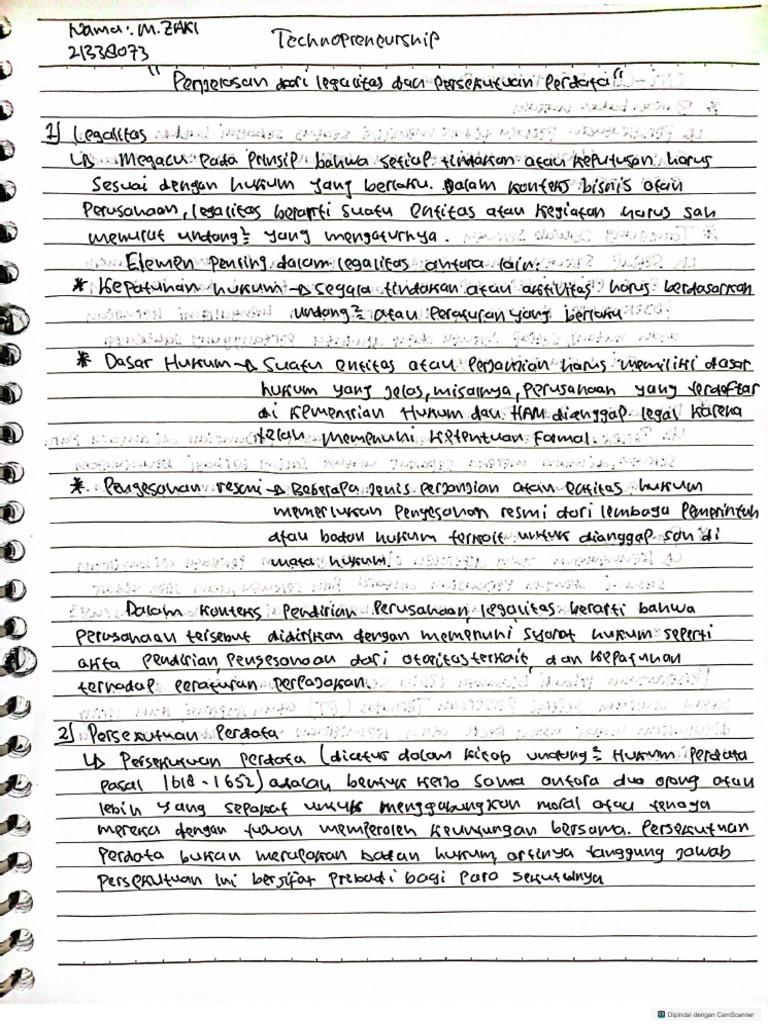 Nama: M. ZAKI
21338073
Technopreneurship
"Penjelasan dari legalitas dan Persekutuan Perdata"
1) Legalitas
↳ Megacu pada prinsip bahwa setiap tindakan atau keputusan harus
sesuai dengan hukum yang berlaku. Dalam konteks bisnis atau
Perusahaan, legalitas berarti suatu entitas atau kegiatan harus sah
menurut undang² yang mengaturnya.
Elemen penting dalam legalitas antara lain:
* Kepatuhan hukum → Segala tindakan atau aktivitas harus berdasarkan
undang² atau Peraturan yang berlaku
* Dasar Hukum → Suatu entitas atau Perjanjian harus memiliki dasar
hukum yang jelas, misalnya, perusahaan yang terdaftar
di Kementrian Hukum dan HAM dianggap legal karena
telah memenuhi ketentuan formal.
* Pengesahan resmi → Beberapa jenis perjanjian atau entitas hukum
memerlukan pengesahan resmi dari lembaga pemerintah
atau badan hukum terkait untuk dianggap sah di
mata hukum.
Dalam konteks Pendirian Perusahaan, legalitas berarti bahwa
perusahaan tersebut didirikan dengan memenuhi syarat hukum seperti
akta pendirian, pengesahaan dari otoritas terkait, dan kepatuhan
terhadap peraturan perpajakan.
2) Persekutuan Perdata
↳ Persekutuan perdata (diatur dalam kitab undang² Hukum Perdata
pasal 1618 - 1652) adalah bentuk kerja sama antara dua orang atau
lebih yang sepakat untuk menggabungkan modal atau tenaga
mereka dengan tujuan memperoleh keuntungan bersama. Persekutuan
Perdata bukan merupakan badan hukum, artinya tanggung jawab
persekutuan ini bersifat pribadi bagi para sekutunya
Dipindai dengan CamScanner